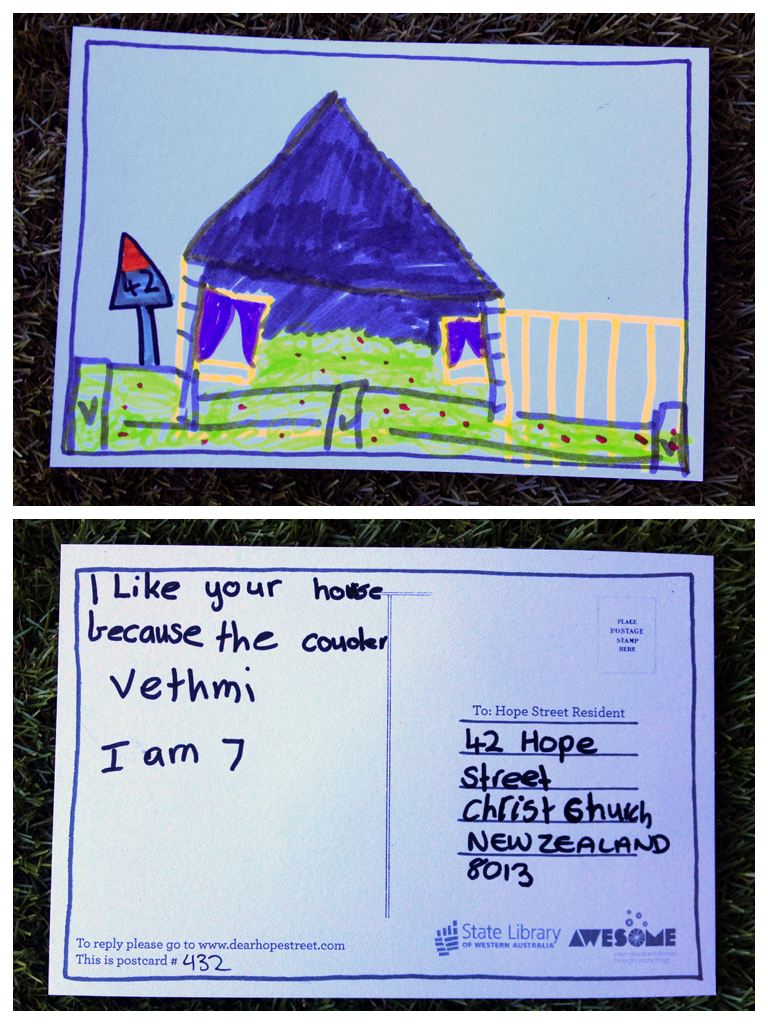 42
I Like your house
because the couoler
Vethmi
I am 7
PLACE
POSTAGE
STAMP
HERE
To: Hope Street Resident
42 Hope
Street
Christ Church
NEW ZEALAND
8013
To reply please go to www.dearhopestreet.com
This is postcard # 432
State Library
OF WESTERN AUSTRALIA
AWESOME